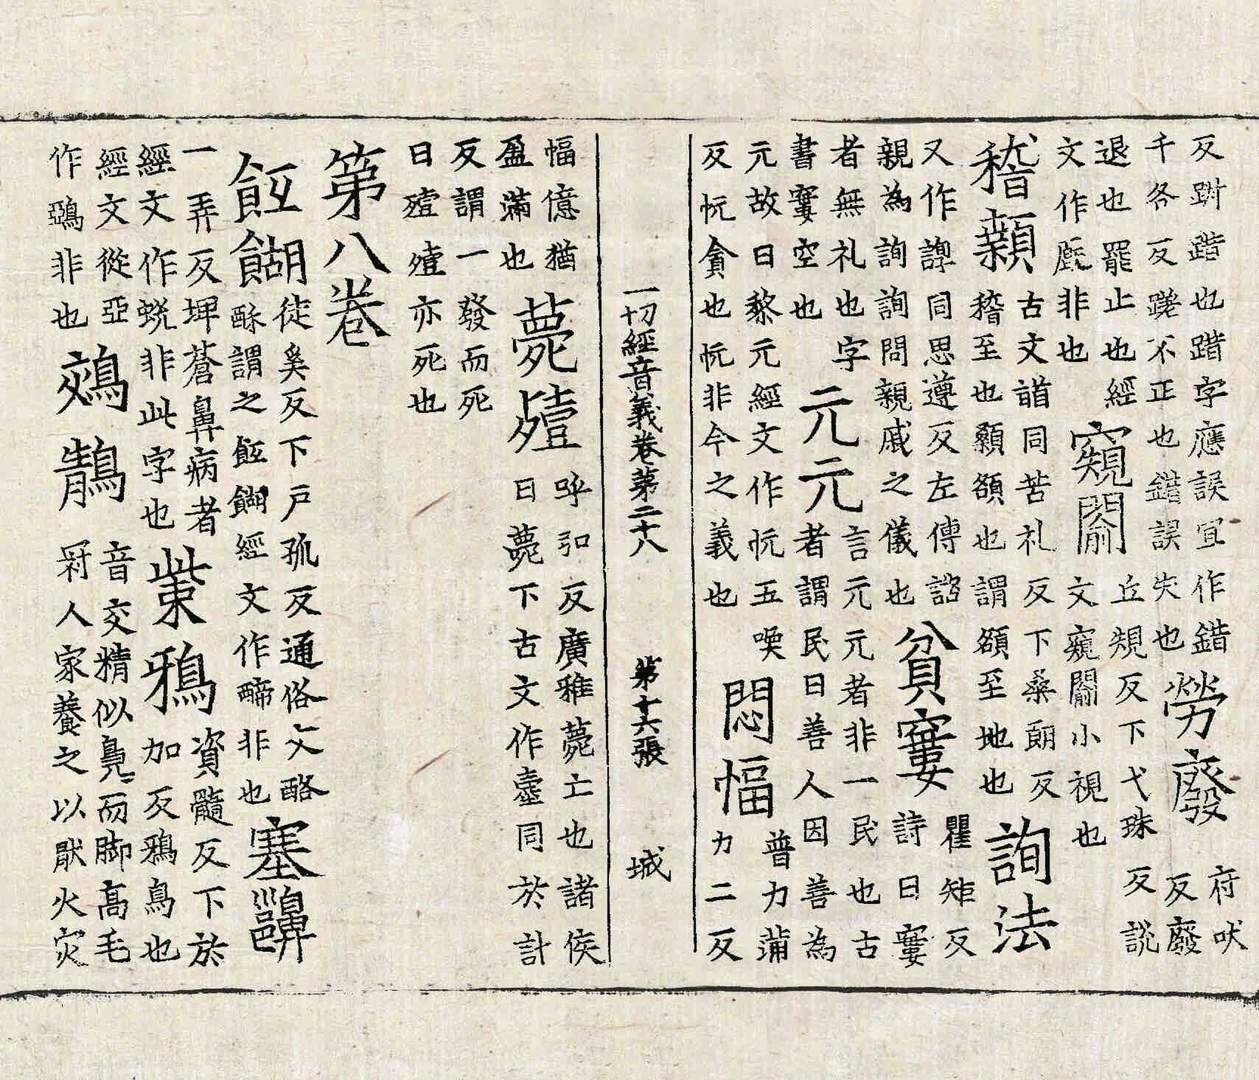 反跗踖也踖字應誤宜作錯
千各反蹉不正也錯誤失也
勞廢
府吠
反廢
退也罷止也經
文作廢非也
窺𨵦
丘規反下弋珠反說
文窺𨵦小視也
稽顙
古文䭫同苦礼反下桑朗反
稽至也顙額也謂額至地也
詢法
又作諄同思遵反左傳諮
親為詢詢問親戚之儀也
貧窶
瞿矩反
詩曰窶
者無礼也字
書窶空也
元元
言元元者非一民也古
者謂民曰善人因善為
元故曰黎元經文作忨五喚
反忨貪也忨非今之義也
悶愊
普力蒲
力二反
一切經音義卷第二十八 第十六張 城
愊億猶
盈滿也
薨殪
呼弘反廣雅薨亡也諸侯
曰薨下古文作同於計
反謂一發而死
曰殪殪亦死也
第八卷
餬
徒奚反下戶孤反通俗文酪
酥謂之餬經文作非也
塞齆
一弄反埤蒼鼻病者
經文作非此字也
鴉
資髓反下於
加反鴉鳥也
經文從亞
作鵶非也
鵁鶄
音交精似鳧而脚高毛
冠人家養之以厭火灾